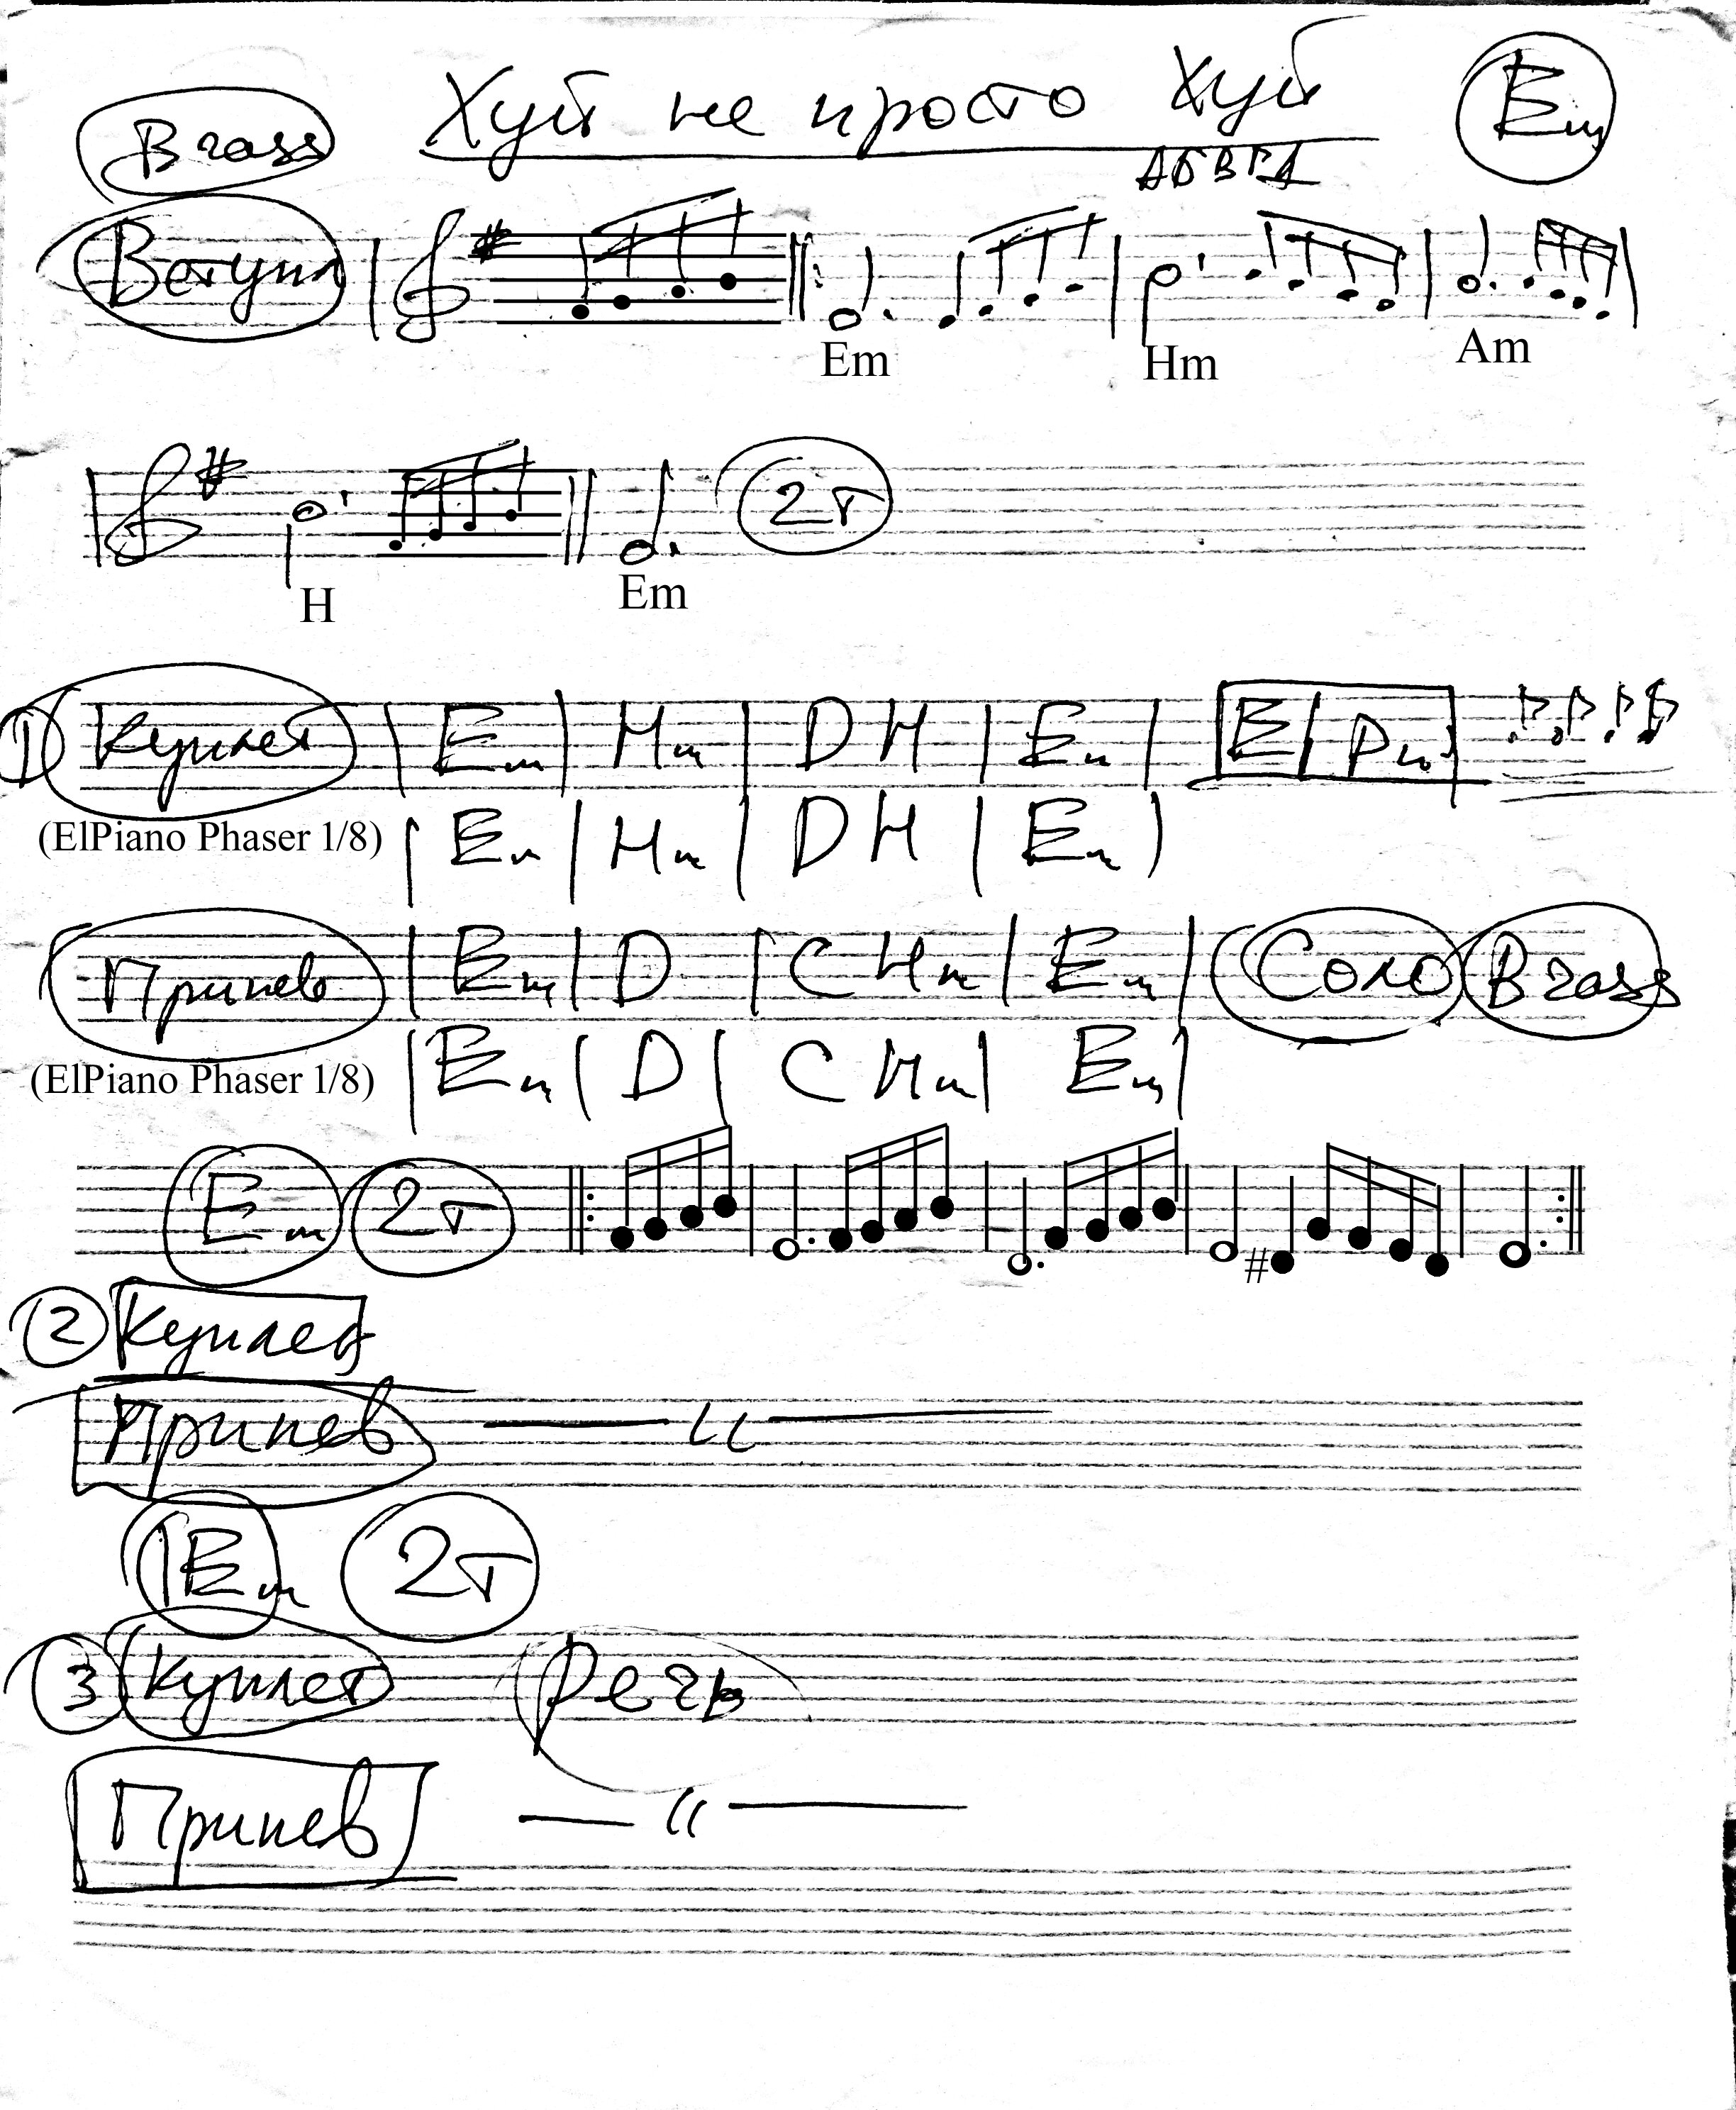 Brass Хуй не просто Хуй Em
АБВГД
Вступл
Em Hm Am
2т
H Em
1 Куплет | Em | Hm | D H | Em |
(ElPiano Phaser 1/8) | Em | Hm | D H | Em |
Припев | Em | D | C Hm | Em | Соло Brass
(ElPiano Phaser 1/8) | Em | D | C Hm | Em |
Em 2т
2 Куплет
Припев — " —
Em 2т
3 Куплет Речь
Припев — " —